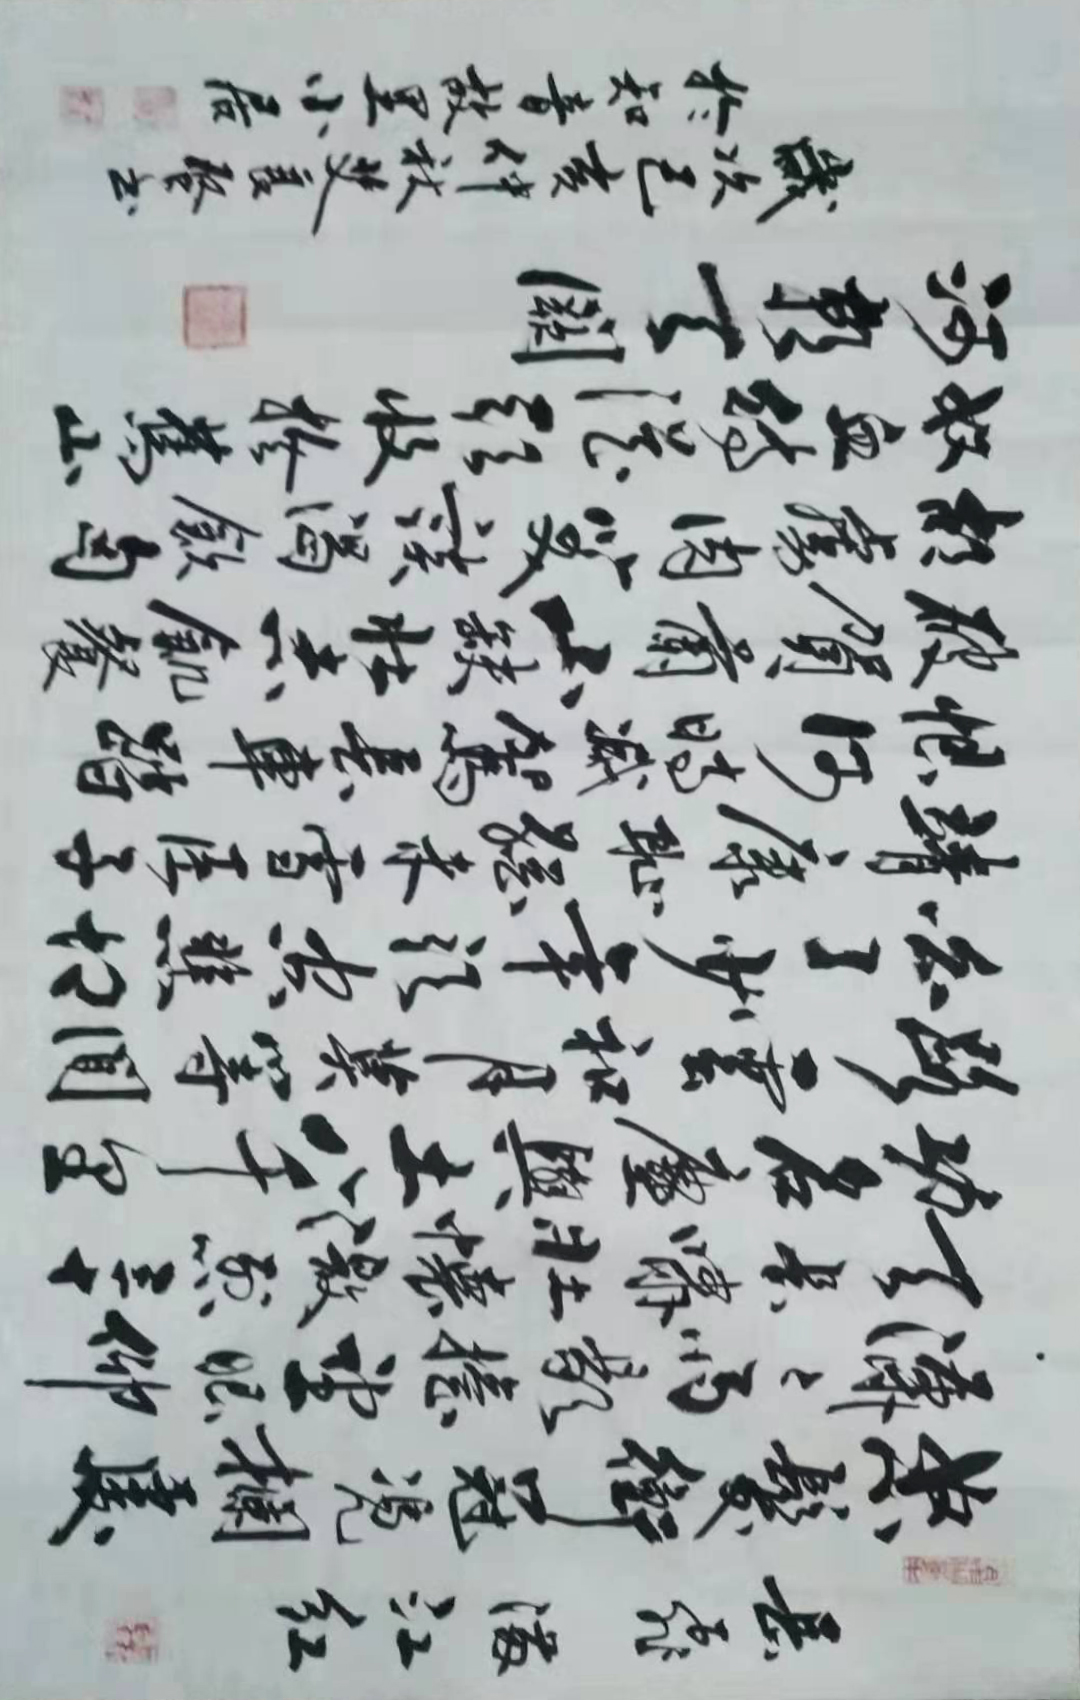 岳飛滿江紅
怒髮衝冠憑欄處
瀟々雨歇抬望眼仰
天長嘯壯懷激烈三十
功名塵與土八千里
路雲和月莫等閒
白了少年頭空悲切
靖康恥猶未雪臣子
恨何時滅駕長車踏
破賀蘭山缺壯志飢餐
胡虜肉笑談渴飲匈
奴血待從頭收拾舊山
河朝天闕
歲次己亥仲秋書
於知音故里小居